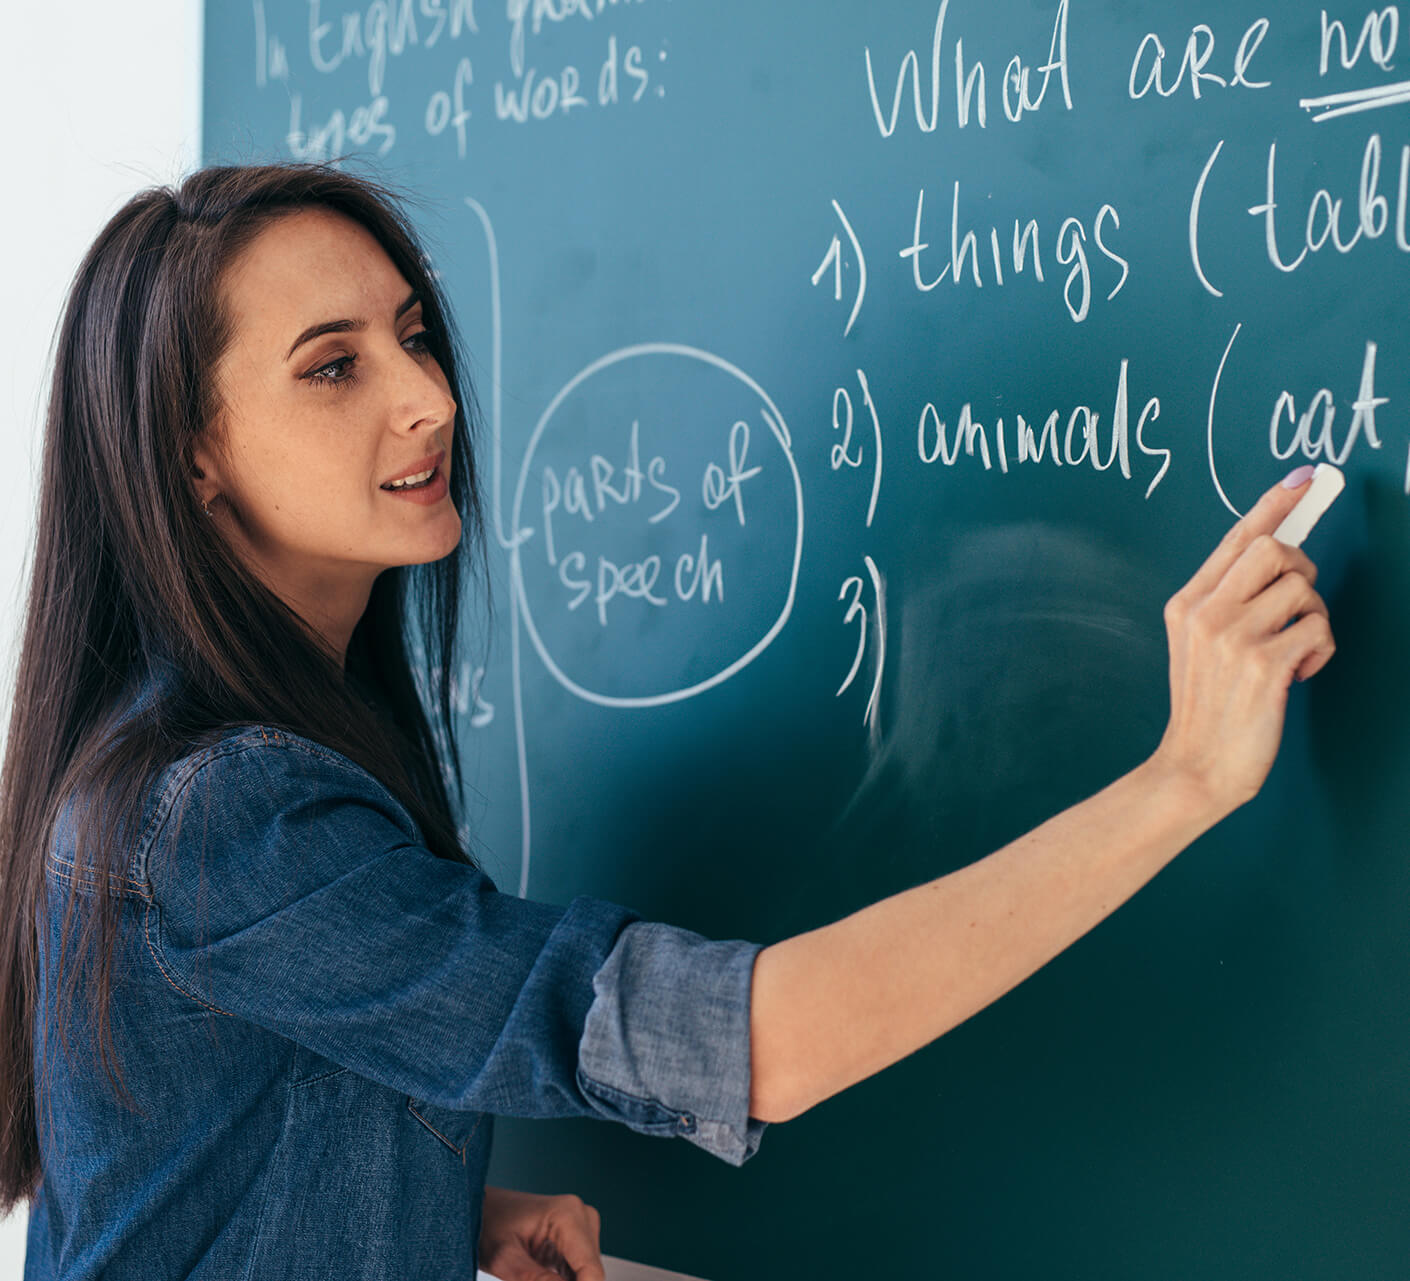 In English
types of words:
parts of
speech
What are
1) things (
2) animals ( cat,
3)